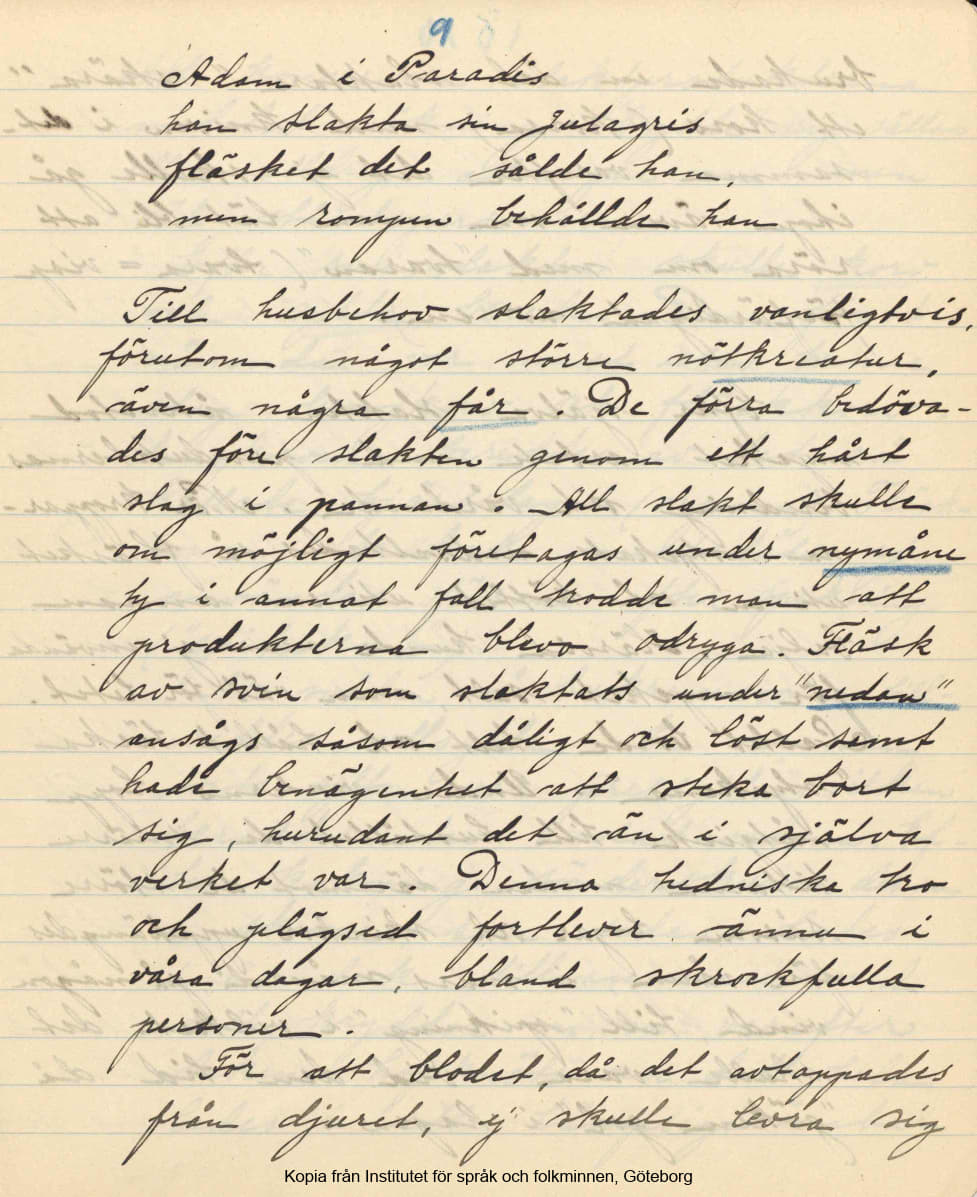 9
Adam i Paradis
han slakta sin julagris
fläsket det sålde han,
men rompen behållde han
Till husbehov slaktades vanligtvis,
förutom något större nötkreatur,
även några får. De förra bedöva-
des före slakten genom ett hårt
slag i pannan. All slakt skulle
om möjligt företagas under nymåne
ty i annat fall trodde man att
produkterna blevo odryga. Fläsk
av svin som slaktats under "nedan"
ansågs såsom dåligt och löst samt
hade benägenhet att steka bort
sig, hurudant det än i själva
verket var. Denna hedniska tro
och plägsed fortlever ännu i
våra dagar, bland skrockfulla
personer.
För att blodet, då det avtappades
från djuret, ej skulle levra sig
Kopia från Institutet för språk och folkminnen, Göteborg